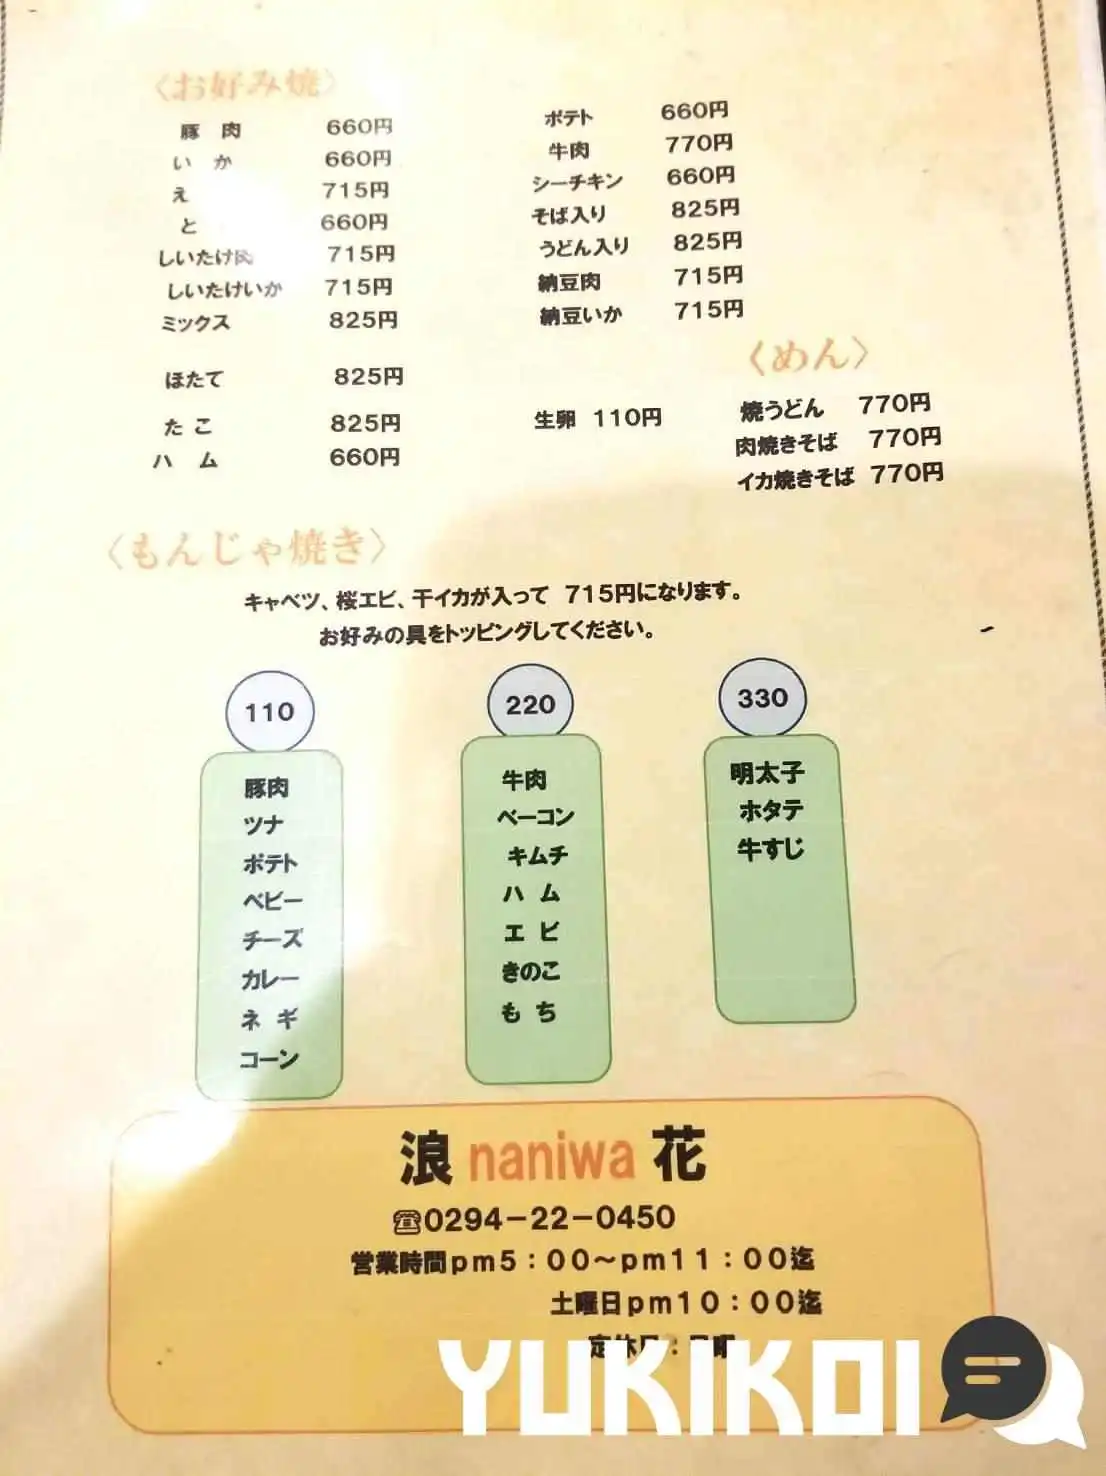 〈お好み焼〉
豚 肉 660円
い か 660円
え 715円
と 660円
しいたけ肉 715円
しいたけいか 715円
ミックス 825円
ほたて 825円
た こ 825円
ハ ム 660円
ポテト 660円
牛肉 770円
シーチキン 660円
そば入り 825円
うどん入り 825円
納豆肉 715円
納豆いか 715円
生卵 110円
〈めん〉
焼うどん 770円
肉焼きそば 770円
イカ焼きそば 770円
〈もんじゃ焼き〉
キャベツ、桜エビ、干イカが入って 715円になります。
お好みの具をトッピングしてください。
110
豚肉
ツナ
ポテト
ベビー
チーズ
カレー
ネ ギ
コーン
220
牛肉
ベーコン
キムチ
ハ ム
エ ビ
きのこ
も ち
330
明太子
ホタテ
牛すじ
浪 naniwa 花
☎0294-22-0450
営業時間pm5：00～pm11：00迄
土曜日pm10：00迄
定休日：
YUKIKOI